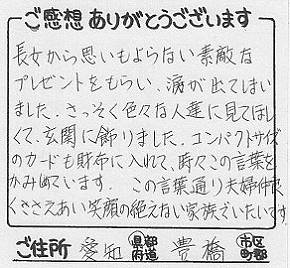 ご感想 ありがとうございます
長女から思いもよらない素敵な
プレゼントをもらい、涙が出てしまい
ました。さっそく色々な人達に見てほし
くて、玄関に飾りました。コンパクトサイズ
のカードも財布に入れて、時々この言葉を
かみめています。この言葉通り夫婦仲良
くささえあい笑顔の絶えない家族でいたいです
ご住所 愛知 都道府県 豊橋 市区町郡